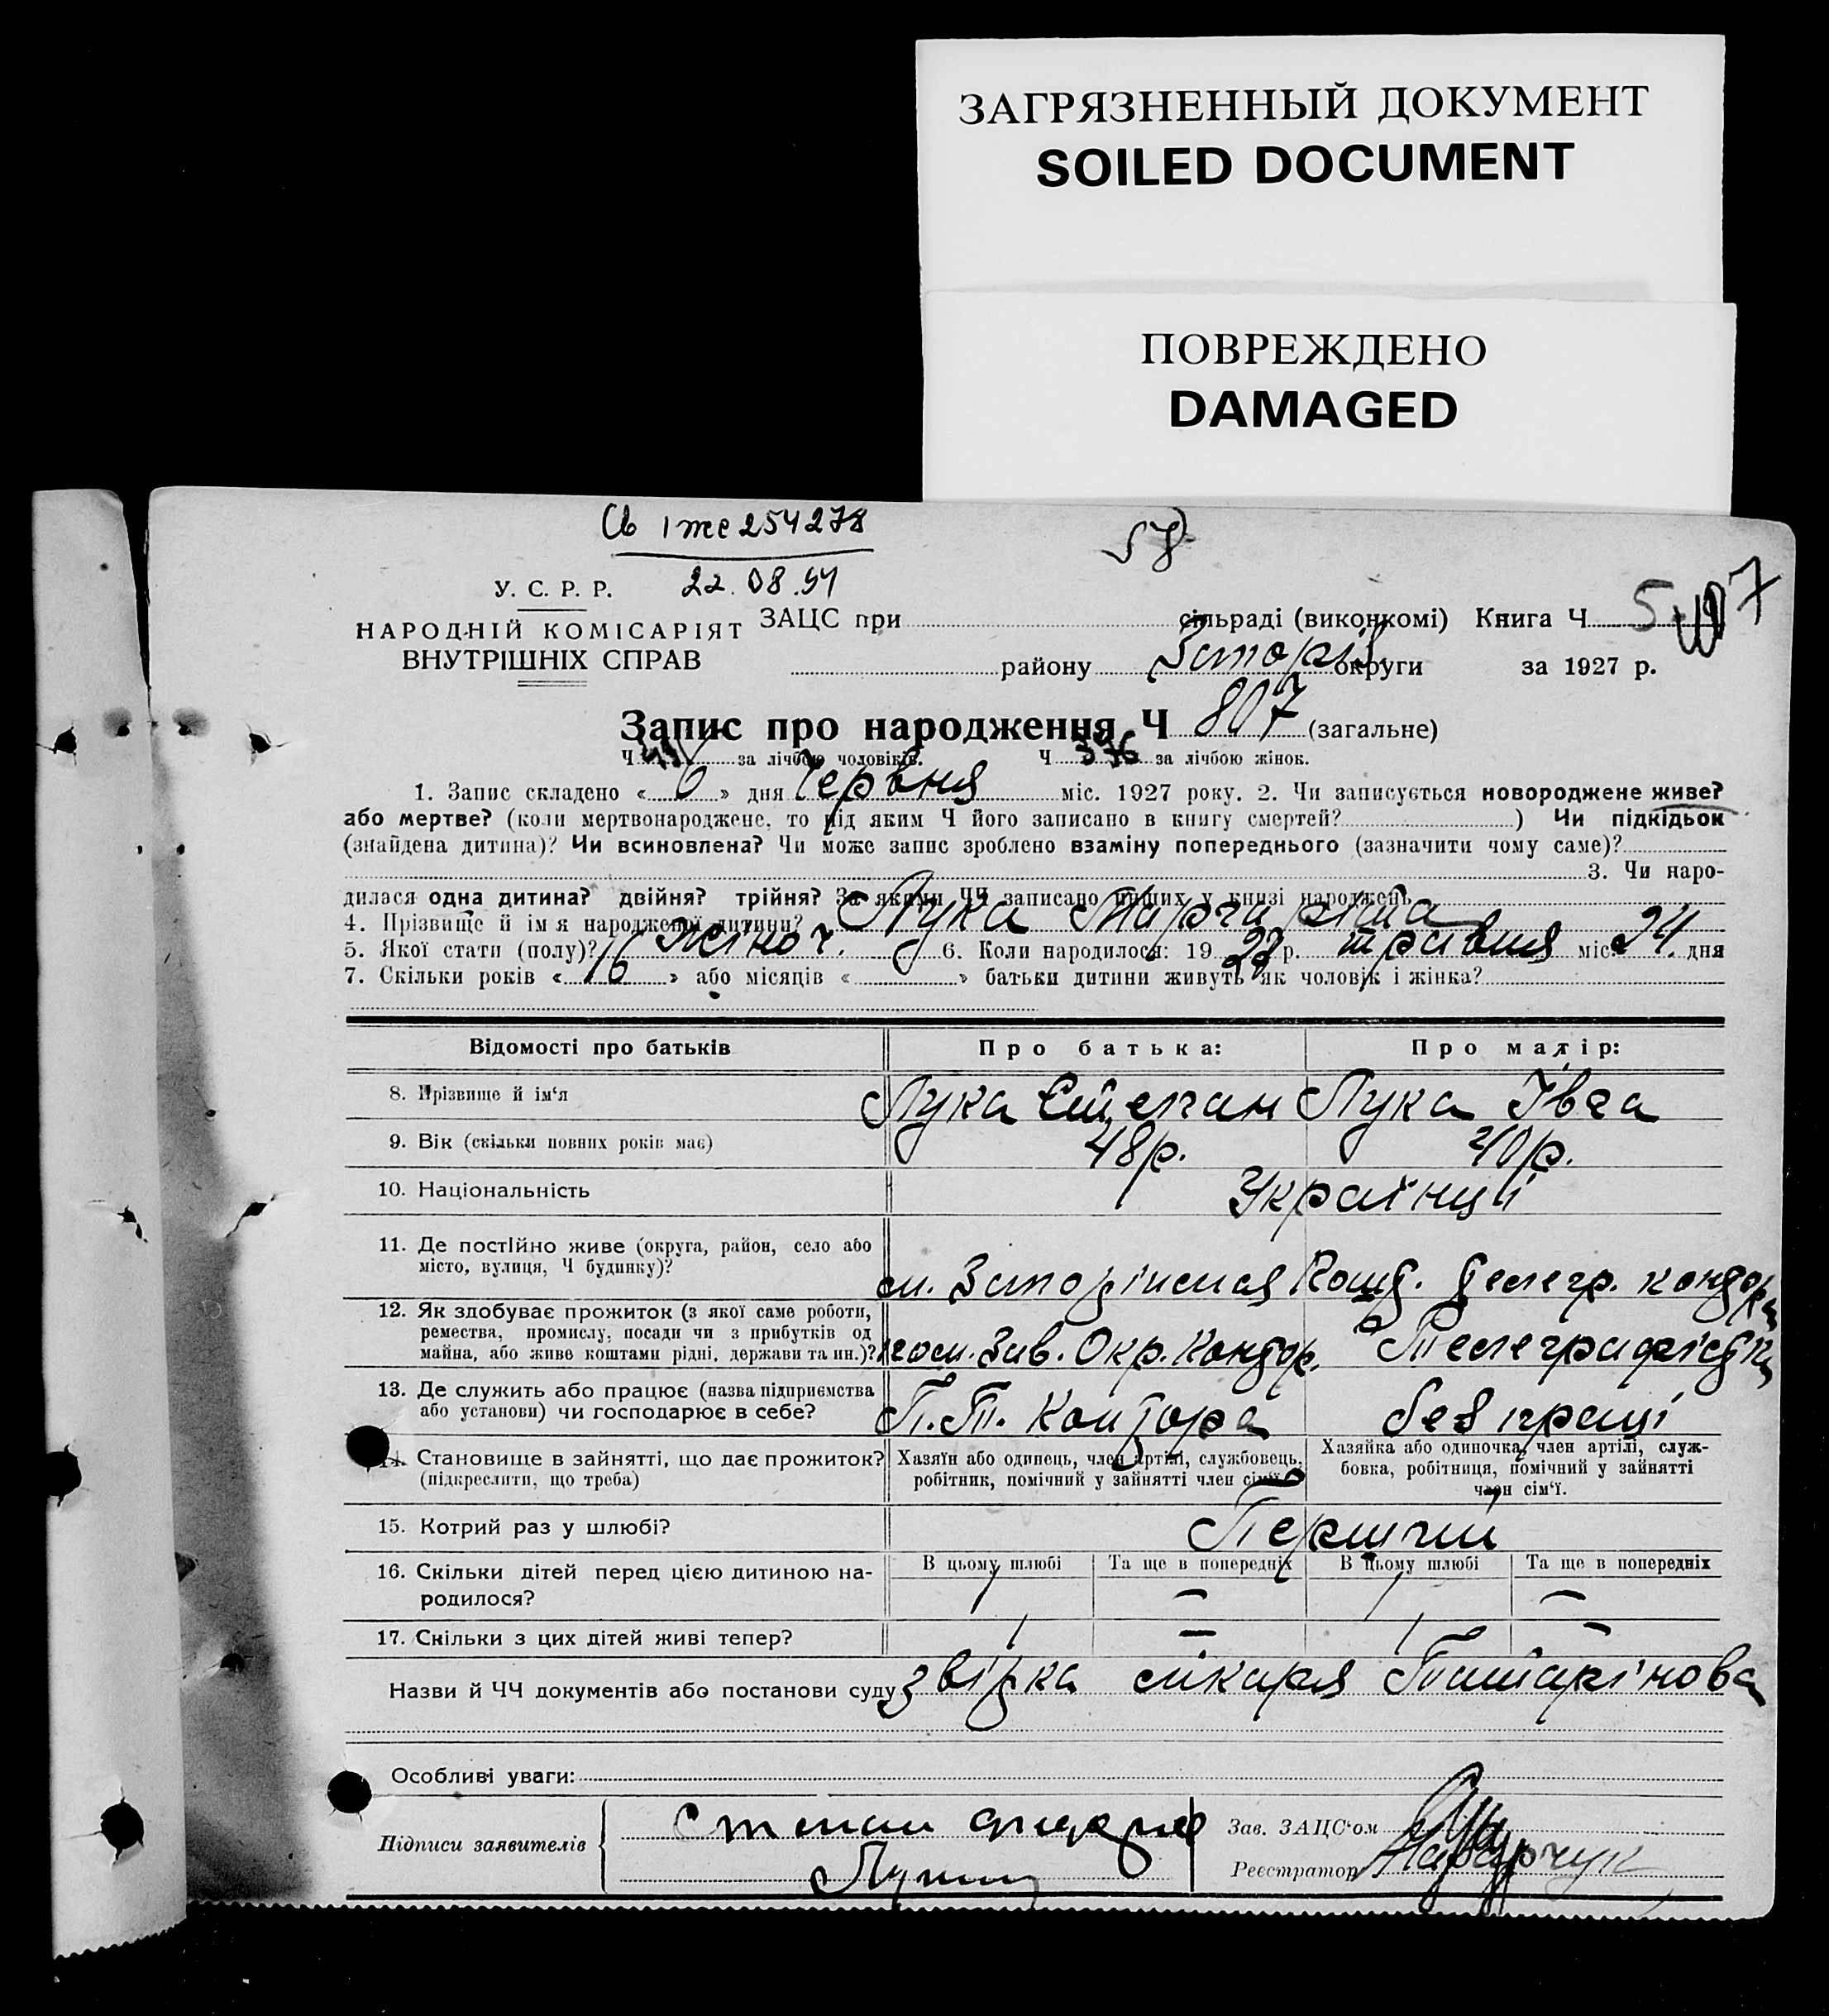 ЗАГРЯЗНЕННЫЙ ДОКУМЕНТ
SOILED DOCUMENT
ПОВРЕЖДЕНО
DAMAGED
254278
58
22.08.
У. С. Р. Р.
НАРОДНІЙ КОМІСАРІЯТ
ВНУТРІШНІХ СПРАВ
ЗАЦС при сільраді (виконкомі) Книга Ч 5
району округи за 1927 р.
Запис про народження Ч 807 (загальне)
Ч за лічбою чоловіків. Ч 376 за лічбою жінок.
1. Запис складено « 6 » дня Червня міс. 1927 року. 2. Чи записується новороджене живе?
або мертве? (коли мертвонароджене, то під яким Ч його записано в книгу смертей? ) Чи підкідьок
(знайдена дитина)? Чи всиновлена? Чи може запис зроблено взаміну попереднього (зазначити чому саме)?
3. Чи наро-
дилася одна дитина? двійня? трійня? За якими ЧЧ записано инших у книзі народжень
4. Прізвище й імя народженої дитини? Лука Маргарита
5. Якої стати (полу)? жіноч. 6. Коли народилося: 19 р. травня міс. 24. дня
7. Скільки років « 16 » або місяців « » батьки дитини живуть як чоловік і жінка?
Відомості про батьків Про батька: Про матір:
8. Прізвище й ім‘я Лука Степан Лука Івга
9. Вік (скільки повних років має) 48р. 40р.
10. Національність Українці
11. Де постійно живе (округа, район, село або
місто, вулиця, Ч будинку)?
м. телегр. контор
12. Як здобуває прожиток (з якої саме роботи,
ремества, промислу, посади чи з прибутків од
майна, або живе коштами рідні, держави та ин.)?
пом. Зав. Окр. Контор. Телеграфістк
13. Де служить або працює (назва підприємства
або установи) чи господарює в себе?
П.Т. Контора без праці
14. Становище в зайнятті, що дає прожиток?
(підкреслити, що треба)
Хазяїн або одинець, член артілі, службовець,
робітник, помічний у зайнятті член сім‘ї.
Хазяйка або одиночка, член артілі, служ-
бовка, робітниця, помічний у зайнятті
член сім‘ї.
15. Котрий раз у шлюбі? Перший
16. Скільки дітей перед цією дитиною на-
родилося?
В цьому шлюбі Та ще в попередніх В цьому шлюбі Та ще в попередніх
1 — 1 —
17. Скільки з цих дітей живі тепер? 1 — 1 —
Назви й ЧЧ документів або постанови суду звірка лікаря Татарінова
Особливі уваги:
Підписи заявителів
Степан
Зав. ЗАЦС‘ом
Реєстратор